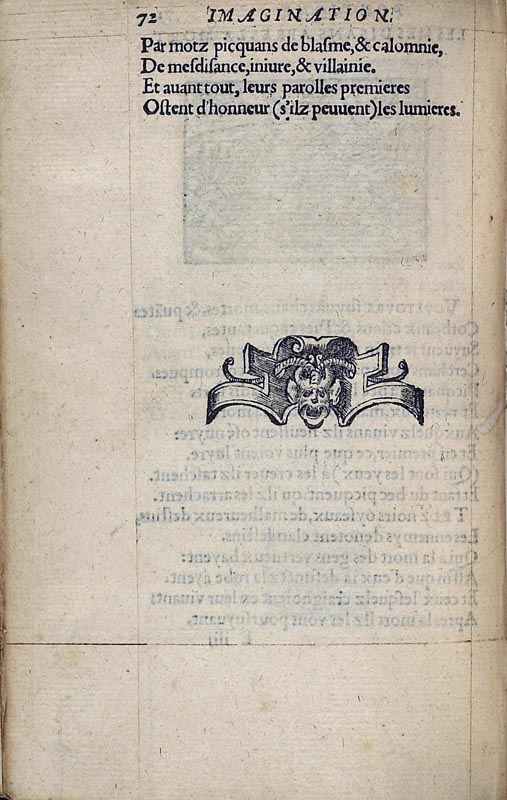 72 IMAGINATION.
Par motz picquans de blaſme, & calomnie,
De meſdiſance, iniure, & villainie.
Et auant tout, leurs parolles premieres
Oſtent d'honneur (s'ilz peuuent) les lumieres.